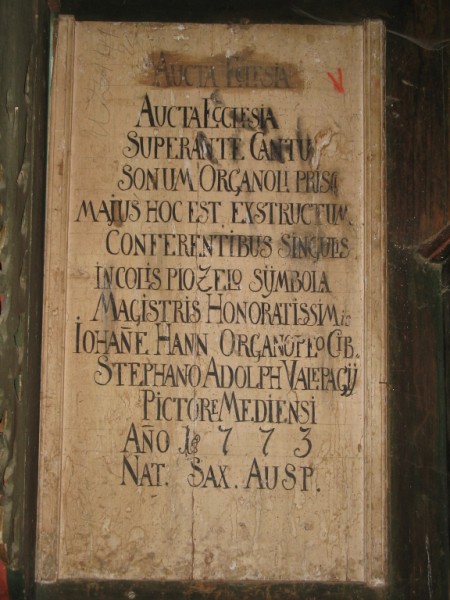 AUCTA ECLESIA
AUCTA ECCLESIA
SUPERANTE CANTU
SONUM ORGANOLI PRISC
MAJUS HOC EST EXSTRUCTUM.
CONFERENTIBUS SINGULIS
INCOLIS PIO ZELO SÿMBOLA
MAGISTRIS HONORATISSIMis
IOHAñE HANN ORGANOPEO CIB.
STEPHANO ADOLPH VALEPAGIJ
PICTORE MEDIENSI
AÑO 1773
NAT. SAX. AUSP.